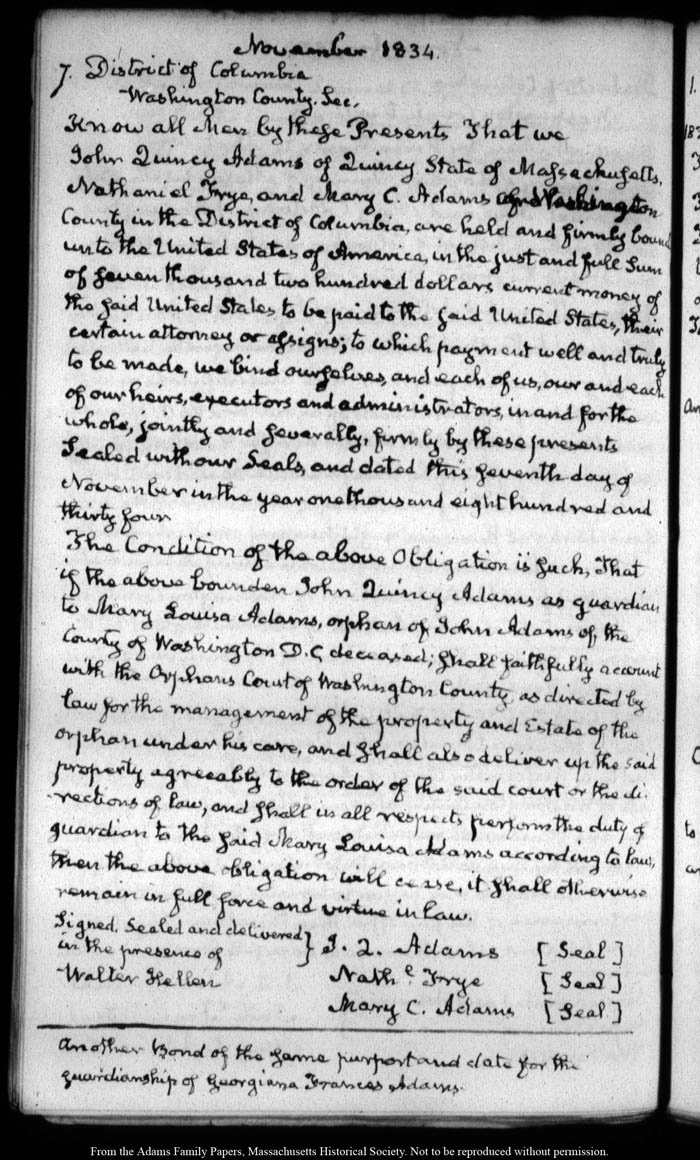 November 1834.
7. District of Columbia
Washington County. Sec.
Know all Men by these Presents That we
John Quincy Adams of Quincy State of Massachusetts,
Nathaniel Frye, and Mary C. Adams of Washington
County in the District of Columbia, are held and firmly bound
unto the United States of America, in the just and full Sum
of seven thousand two hundred dollars current money of
the said United States, to be paid to the said United States, their
certain attorney or assigns; to which payment well and truly
to be made, we bind ourselves, and each of us, our and each
of our heirs, executors and administrators, in and for the
whole, jointly and severally, firmly by these presents
Sealed with our Seals, and dated this seventh day of
November in the year one thousand eight hundred and
thirty four
The Condition of the above Obligation is such, That
if the above bounden John Quincy Adams as guardian
to Mary Louisa Adams, orphan of John Adams of, the
County of Washington D.C, deceased; shall faithfully account
with the Orphans Court of Washington County, as directed by
law for the management of the property and Estate of the
orphan under his care, and shall also deliver up the said
property agreeably to the order of the said court or the di-
-rections of law, and shall in all respects perform the duty of
guardian to the said Mary Louisa Adams according to law,
then the above obligation will cease, it shall otherwise
remain in full force and virtue in law.
Signed, Sealed and delivered
in the presence of } J. Q. Adams [Seal]
Walter Hellen Nathl. Frye [Seal]
Mary C. Adams [Seal]
Another Bond of the same purport and date for the
guardianship of Georgiana Frances Adams.
From the Adams Family Papers, Massachusetts Historical Society. Not to be reproduced without permission.